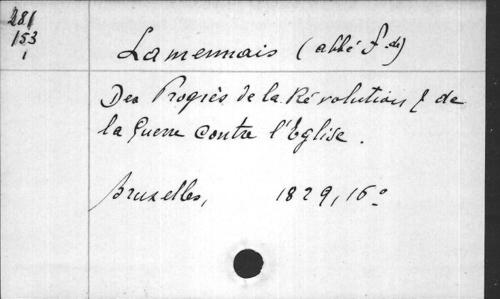 281
153
1
Lamennais (abbé F. de)
Des Progrès de la Révolution & de
la Guerre contre l'Eglise.
Bruxelles, 1829, 16°